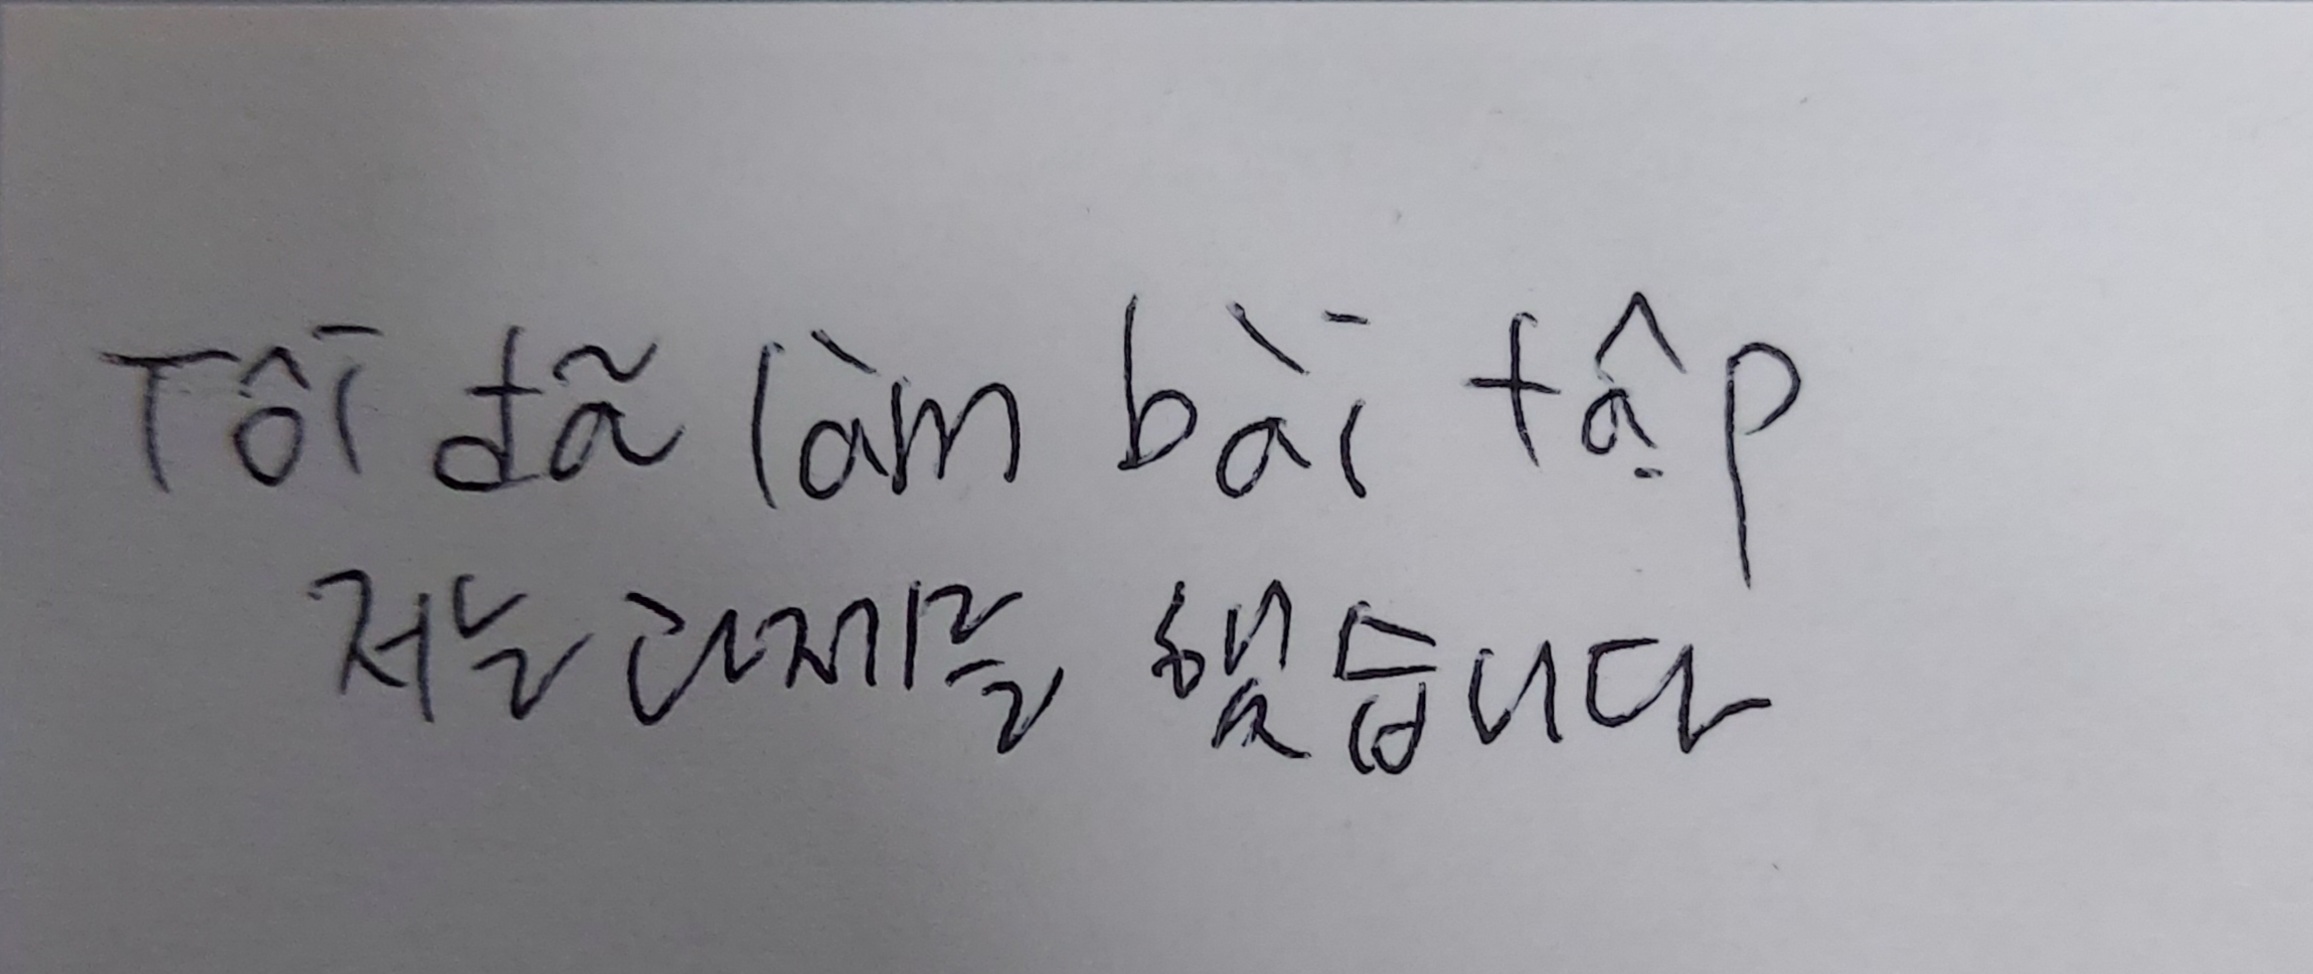 Tôi đã làm bài tập
저는 과제를 했습니다